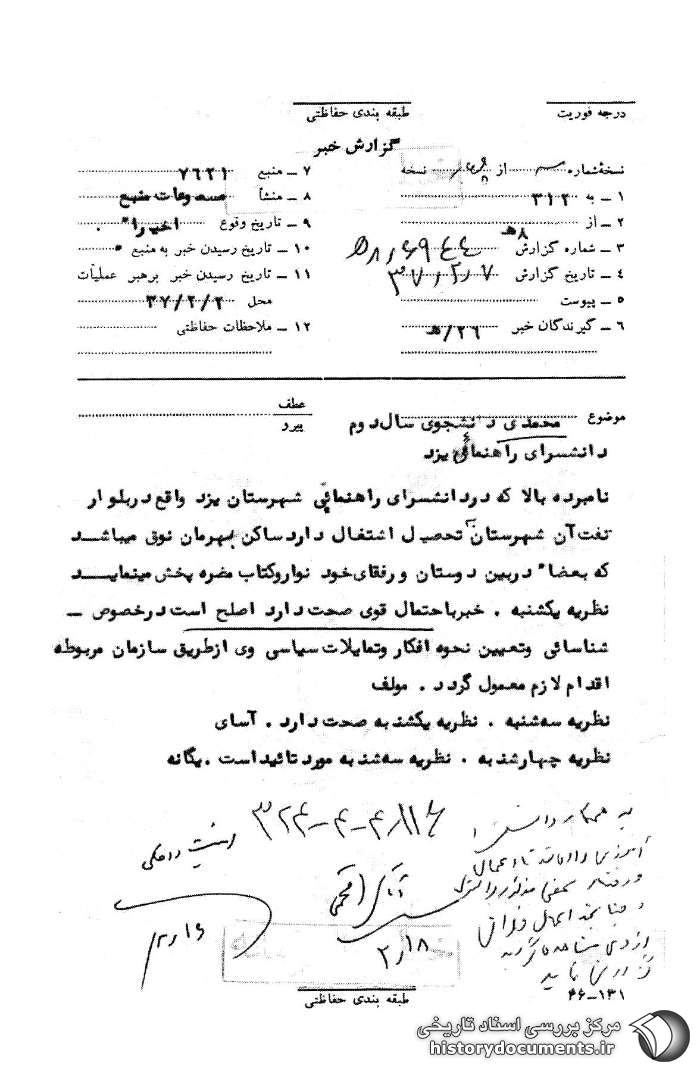 درجه فوریت
طبقه بندی حفاظتی
گزارش خبر
نسخهٔ شماره از چهار نسخه
۱ ــ به ۳۱۲
۲ ــ از ۸ هـ
۳ ــ شماره گزارش
۴ ــ تاریخ گزارش ۳۷/۲/۷
۵ ــ پیوست
۶ ــ گیرندگان خبر ۲۶/هـ
۷ ــ منبع ۷۶۲۱
۸ ــ منشأ مسموعات منبع
۹ ــ تاریخ وقوع اخیرا" .
۱۰ ــ تاریخ رسیدن خبر به منبع "
۱۱ ــ تاریخ رسیدن خبر برهبر عملیات
محل ۳۷/۲/۲
۱۲ ــ ملاحظات حفاظتی
موضوع محمدی دانشجوی سال دوم
دانشسرای راهنمائی یزد
عطف
پیرو
نامبرده بالا که دردانشسرای راهنمائی شهرستان یزد واقع دربلوار
تفت آن شهرستان تحصیل اشتغال دارد ساکن بهرمان نوق میباشد
که بعضا" دربین دوستان و رفقای خود نوار و کتاب مضره پخش مینماید
نظریه یکشنبه . خبر باحتمال قوی صحت دارد اصلح است درخصوص ــ
شناسائی وتعیین نحوه افکار وتمایلات سیاسی وی ازطریق سازمان مربوطه
اقدام لازم معمول گردد . مولف
نظریه سه شنبه . نظریه یکشنبه صحت دارد . آسای
نظریه چهارشنبه . نظریه سه شنبه مورد تائید است . یگانه
به همکار دانش
آموزی
مشاهده گردید
گزارش نمایید
امنیت داخلی
۲/۱۶
آقای
۲/۱۸
۴۶-۱۳۱
طبقه بندی حفاظتی
مرکز بررسی اسناد تاریخی
historydocuments.ir